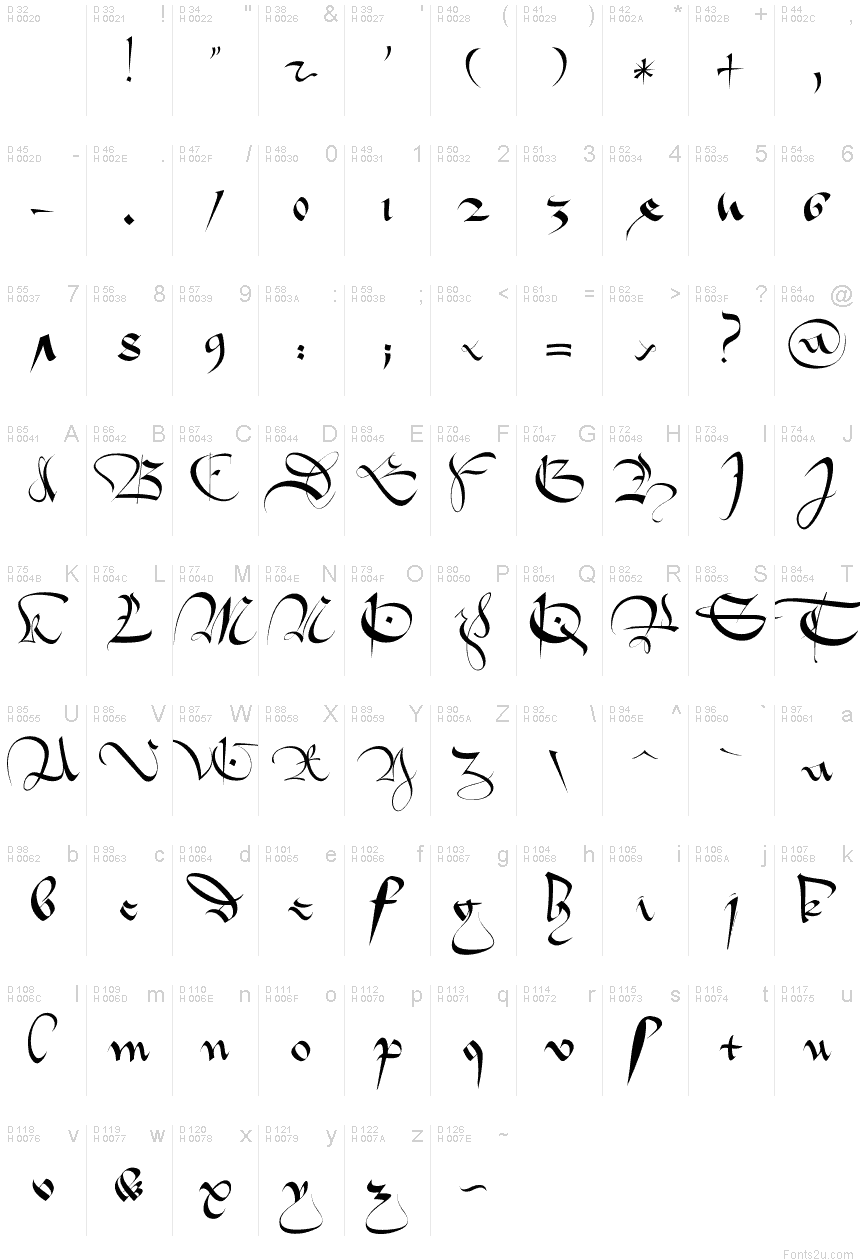 D 32 H 0020 D 33 H 0021 ! D 34 H 0022 " D 38 H 0026 & D 39 H 0027 ' D 40 H 0028 ( D 41 H 0029 ) D 42 H 002A * D 43 H 002B + D 44 H 002C ,
! " & ' ( ) * + ,
D 45 H 002D - D 46 H 002E . D 47 H 002F / D 48 H 0030 0 D 49 H 0031 1 D 50 H 0032 2 D 51 H 0033 3 D 52 H 0034 4 D 53 H 0035 5 D 54 H 0036 6
- . / 0 1 2 3 4 5 6
D 55 H 0037 7 D 56 H 0038 8 D 57 H 0039 9 D 58 H 003A : D 59 H 003B ; D 60 H 003C < D 61 H 003D = D 62 H 003E > D 63 H 003F ? D 64 H 0040 @
7 8 9 : ; < = > ? @
D 65 H 0041 A D 66 H 0042 B D 67 H 0043 C D 68 H 0044 D D 69 H 0045 E D 70 H 0046 F D 71 H 0047 G D 72 H 0048 H D 73 H 0049 I D 74 H 004A J
A B C D E F G H I J
D 75 H 004B K D 76 H 004C L D 77 H 004D M D 78 H 004E N D 79 H 004F O D 80 H 0050 P D 81 H 0051 Q D 82 H 0052 R D 83 H 0053 S D 84 H 0054 T
K L M N O P Q R S T
D 85 H 0055 U D 86 H 0056 V D 87 H 0057 W D 88 H 0058 X D 89 H 0059 Y D 90 H 005A Z D 92 H 005C \ D 94 H 005E ^ D 96 H 0060 ` D 97 H 0061 a
U V W X Y Z \ ^ ` a
D 98 H 0062 b D 99 H 0063 c D 100 H 0064 d D 101 H 0065 e D 102 H 0066 f D 103 H 0067 g D 104 H 0068 h D 105 H 0069 i D 106 H 006A j D 107 H 006B k
b c d e f g h i j k
D 108 H 006C l D 109 H 006D m D 110 H 006E n D 111 H 006F o D 112 H 0070 p D 113 H 0071 q D 114 H 0072 r D 115 H 0073 s D 116 H 0074 t D 117 H 0075 u
l m n o p q r s t u
D 118 H 0076 v D 119 H 0077 w D 120 H 0078 x D 121 H 0079 y D 122 H 007A z D 126 H 007E ~
v w x y z ~
Fonts2u.com